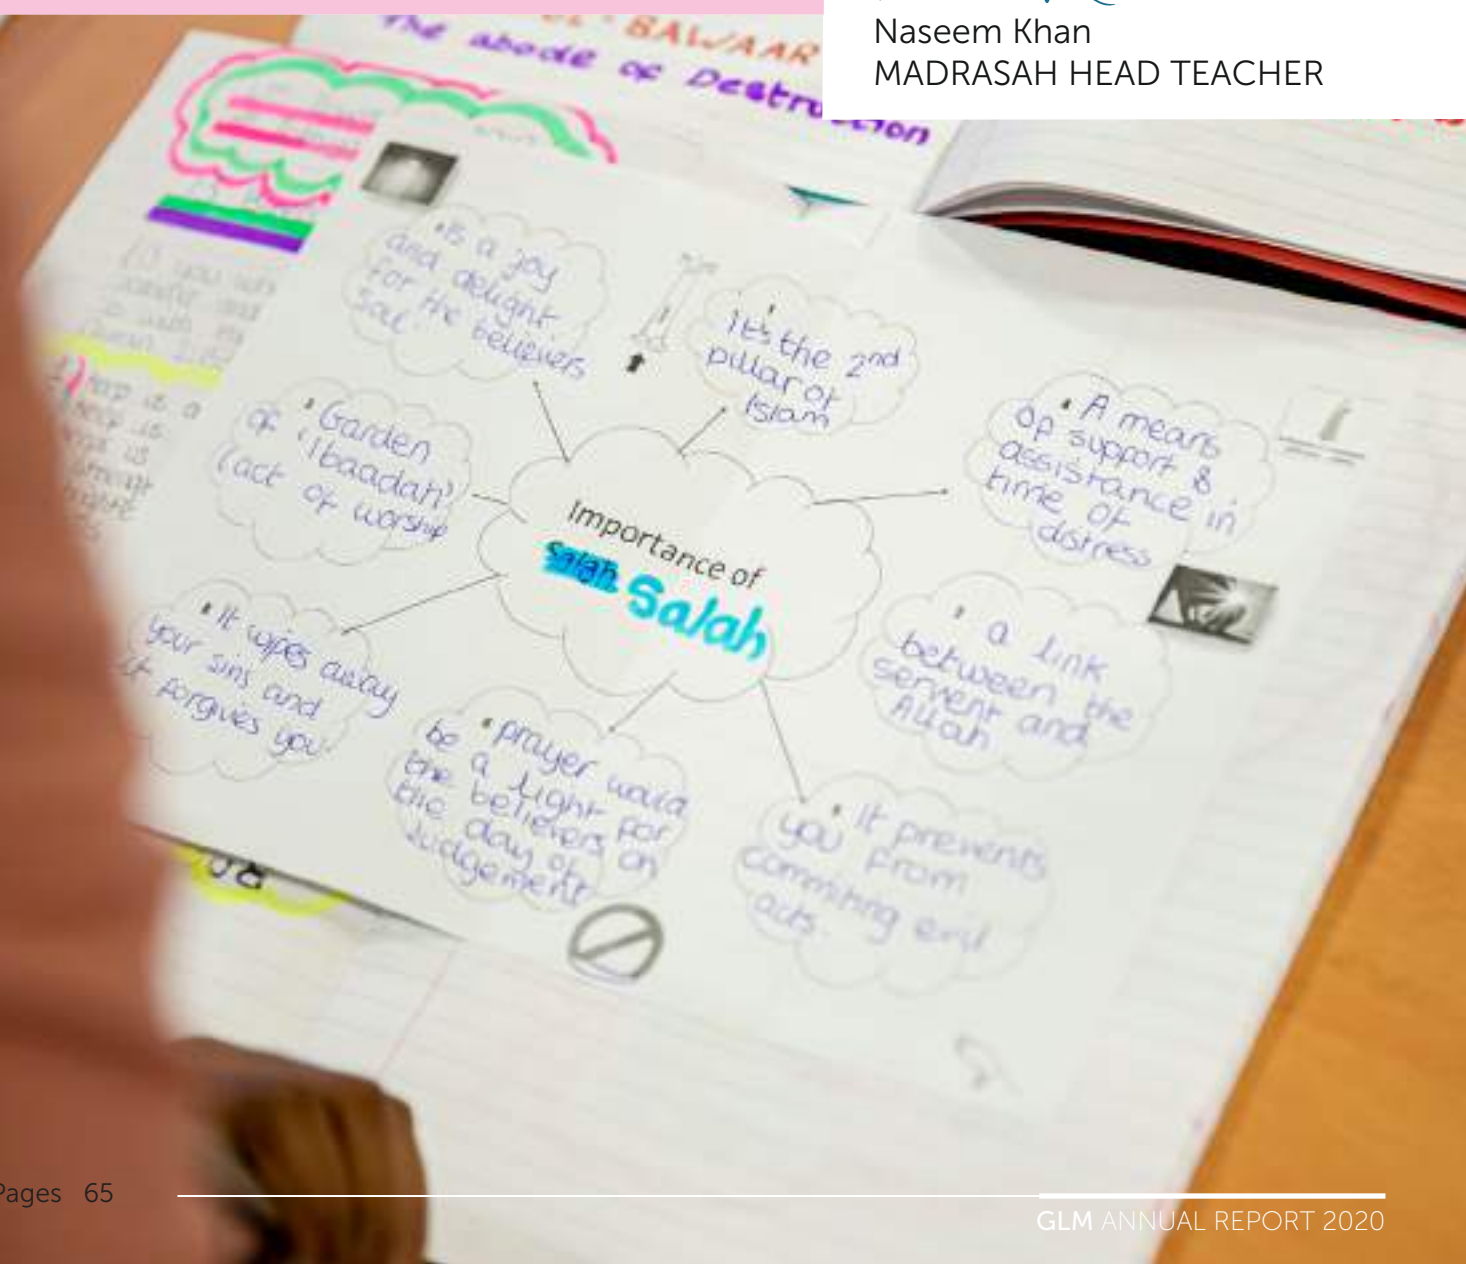 Naseem Khan
MADRASAH HEAD TEACHER
BAWAAR
The abode of Destruction
• Is a joy
and delight
for the believers
soul
• It's the 2nd
pillar of
Islam
• A means
of support &
assistance in
time of
distress
• Garden
of 'Ibaadah'
(act of worship
Importance of
Salah Salah
• a link
between the
servent and
Allah
• It wipes away
your sins and
it forgives you.
• prayer would
be a light for
the believers on
the day of
Judgement
• It prevents
you from
commiting evil
acts.
Pages 65
GLM ANNUAL REPORT 2020